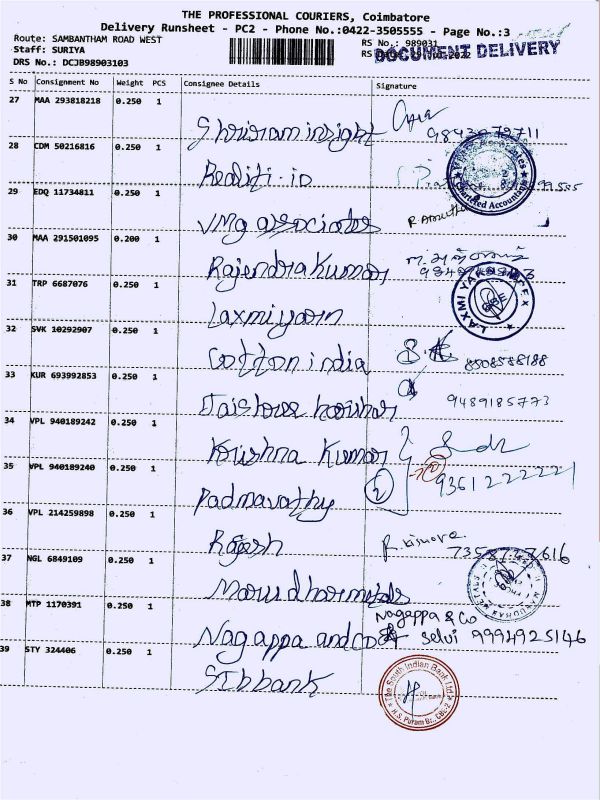 THE PROFESSIONAL COURIERS, Coimbatore
Delivery Runsheet - PC2 - Phone No.:0422-3505555 - Page No.:3
Route: SAMBANTHAM ROAD WEST
Staff: SURIYA
DRS No.: DCJB98903103
RS No.: 989031
DOCUMENT DELIVERY
S No Consignment No Weight PCS Consignee Details Signature
27 MAA 293818218 0.250 1
Shriram insight
28 CDM 50216816 0.250 1
29 EDQ 11734811 0.250 1
Chartered Accountants
VMg associates
30 MAA 291501095 0.200 1
Rajendra Kumar
31 TRP 6687076 0.250 1
Laxmiyarn
LAXMI YARN TEX
32 SVK 10292907 0.250 1
Cotton india
8508588188
33 KUR 693992853 0.250 1
9489185773
34 VPL 940189242 0.250 1
Krishna Kumar
35 VPL 940189240 0.250 1
2
Padmavathy
36 VPL 214259898 0.250 1
Rajesh
R. kishore
37 NGL 6849109 0.250 1
38 MTP 1170391 0.250 1
Nagappa & Co
Nagappa and co
Selvi 9994925146
39 STY 324406 0.250 1
SIbbank
The South Indian Bank Ltd.
R.S. Puram Br., CBE-2